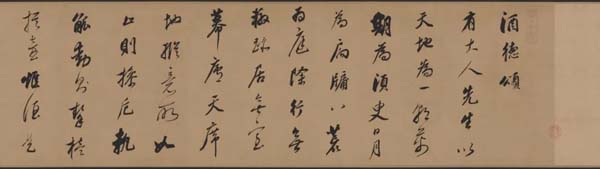 酒德頌
有大人先生以
天地為一朝萬
期為須臾日月
為扃牖八荒
為庭除行無
轍跡居無室
幕廬天席
地縱意所如
止則操卮執
觚動則挈榼
提壺唯酒是